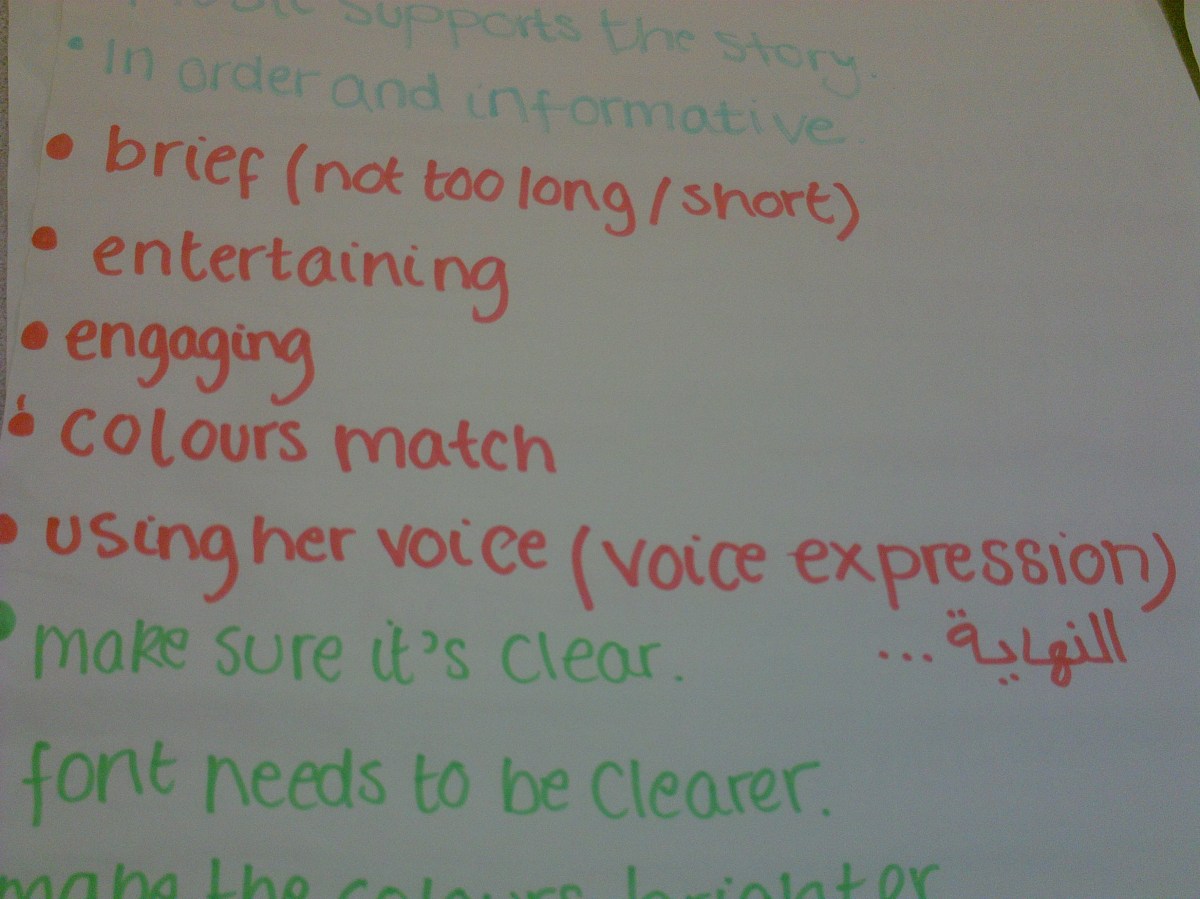 supports the story.
• In order and informative
• brief (not too long / short)
• entertaining
• engaging
• colours match
• using her voice (voice expression)
النهاية ...
• make sure it's clear.
font needs to be clearer.
the colours brighter